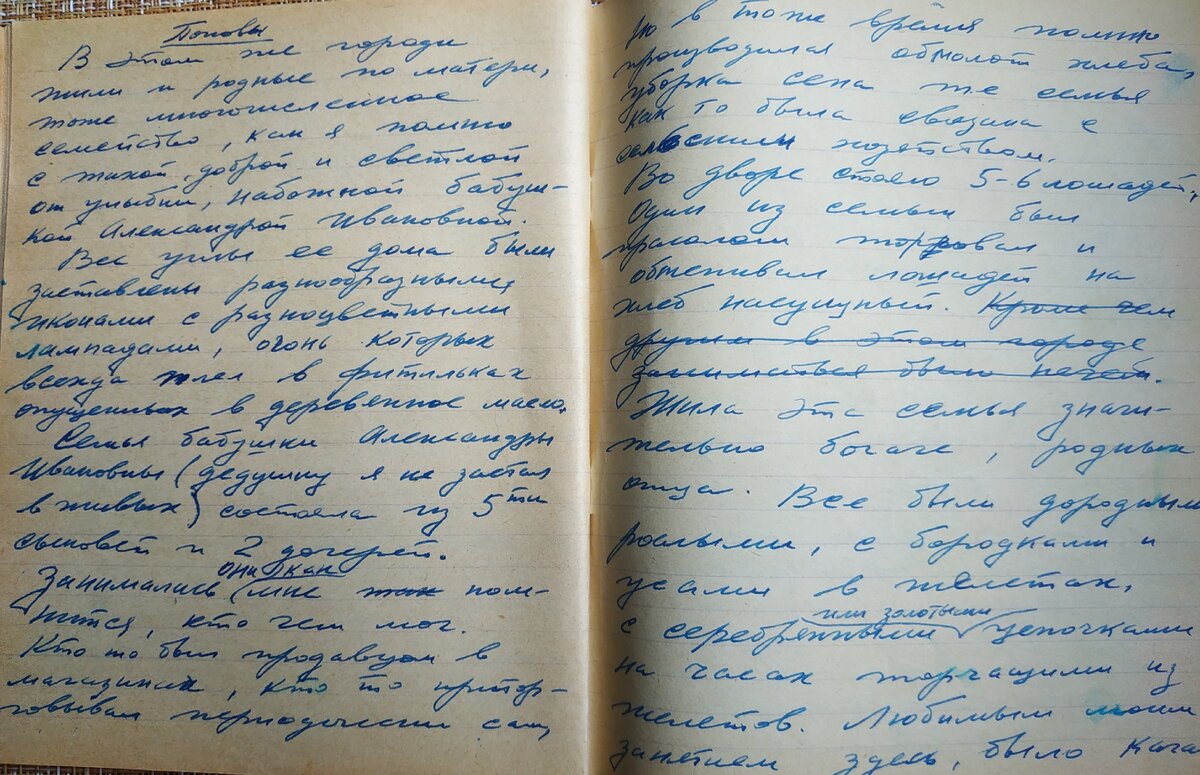 Поповы
В этом же городи
жили и родные по матери,
тоже многочисленное
семейство, как я помню
с тихой, доброй и светлой
от улыбки, набожной бабуш-
кой Александрой Ивановной.
Все углы ее дома были
заставлены разнообразными
иконами с разноцветными
лампадами, огонь которых
всегда тлел в фитильках
опущенных в деревянное масло.
Семья бабушки Александры
Ивановны (дедушку я не застал
в живых) состояла из 5ти
сыновей и 2 дочерей.
они как
Занимались мне так пом-
нится, кто чем мог.
Кто то был продавцом в
магазинах, кто то притор-
говывал периодически сам,
но в тоже время помню
производился обмолот хлеба,
уборка сена же семья
как то была связана с
сельским хозяйством.
Во дворе стояло 5-6 лошадей,
Один из семьи был
прасолом торговал и
обменивал лошадей на
хлеб насущный. Кроме чем
другим в этом городе
заниматься было нечем.
Жила эта семья значи-
тельно богаче, родных
отца. Все были дородными
рослыми, с бородками и
усами в жилетах,
или золотыми
с серебрянными цепочками
на часах торчащими из
жилетов. Любимым моим
занятием здесь, было кача